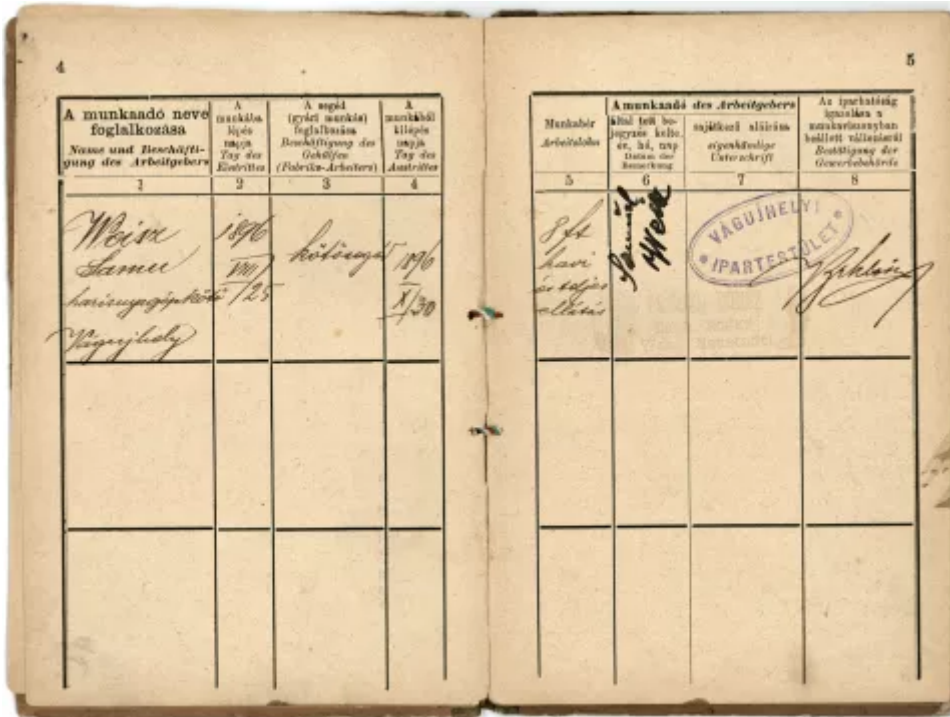 4
A munkaadó neve
foglalkozása
Name und Beschäfti-
gung des Arbeitgebers
A
munkába
lépés
napja
Tag des
Eintrittes
A segéd
(gyári munkás)
foglalkozása
Beschäftigung des
Gehülfen
(Fabriks-Arbeiters)
A
munkából
kilépés
napja
Tag des
Austrittes
1
2
3
4
Weisz
Samu
harisnyagépkötő
Vágujhely
1896
VIII/25
1896
X/30
5
Munkabér
Arbeitslohn
A munkaadó des Arbeitgebers
által tett be-
jegyzés kelte,
év, hó, nap
Datum der
Bemerkung
sajátkezű aláírása
eigenhändige
Unterschrift
Az iparhatóság
igazolása a
munkaviszonyban
beállott változásról
Bestätigung der
Gewerbebehörde
5
6
7
8
8 ft
havi
és teljes
ellátás
Samuel
Weisz
VÁGUJHELYI
IPARTESTÜLET